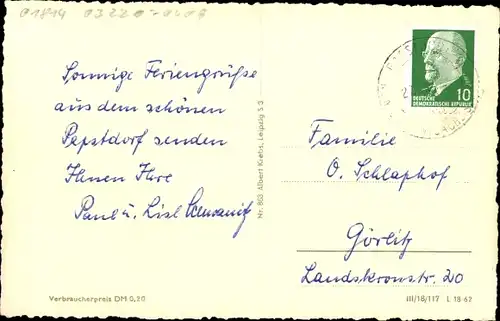 01814 03220-0408
Sonnige Feriengrüße
aus dem schönen
Papstdorf senden
Ihnen Ihre
Paul u. Lisl
Nr. 803 Albert Krebs, Leipzig S 3
10
DEUTSCHE
DEMOKRATISCHE REPUBLIK
Familie
O. Schlaphof
Görlitz
Landskronstr. 20
Verbraucherpreis DM 0,20
III/18/117 L 18 62